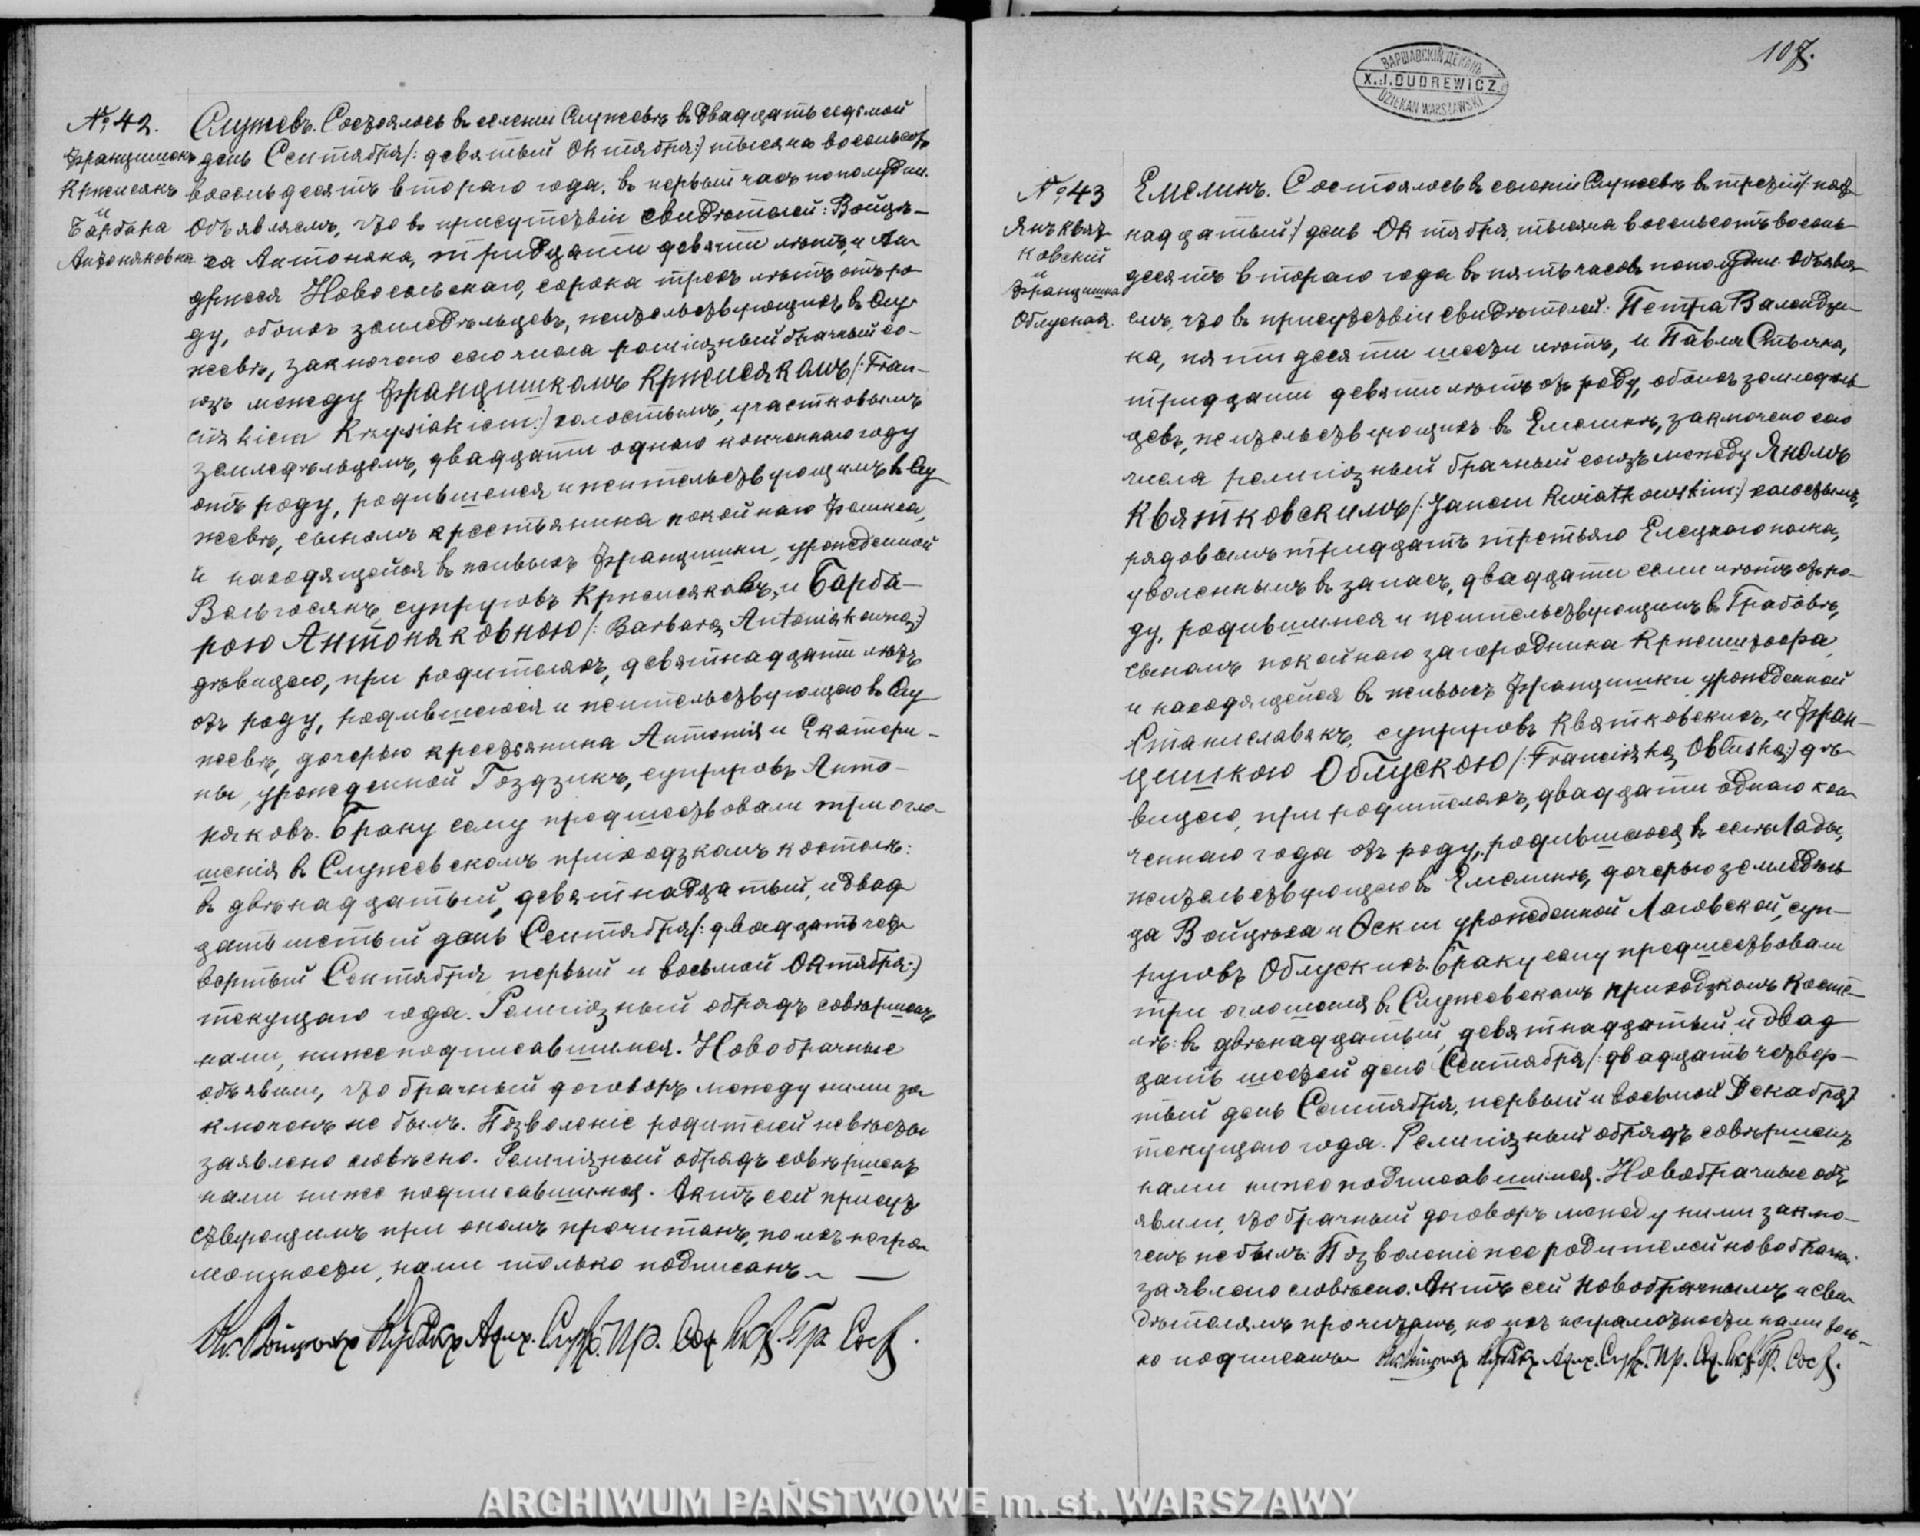 № 42.
Францишекъ
Кржисякъ
и
Барбара
Антоняковна
Служевъ. Состоялось въ селеніи Служевѣ въ двадцать седьмой
день Сентября /: девятый Октября:/ тысяча восемьсотъ
восемьдесятъ втораго года, въ первый часъ пополудни.
Объявляемъ, что въ присутствіи свидѣтелей: Войцѣ-
ха Антоняка, тридцати девяти лѣтъ, и Ан-
држея Новосельскаго, сорока трехъ лѣтъ отъ ро
ду, обоихъ земледѣльцевъ, жительствующихъ въ Слу-
жевѣ, заключено сего числа религіозный брачный со-
юзъ между Францишкомъ Кржисякомъ /: Fran-
ciszkiem Krzysiakiem:/ холостымъ, участковымъ
земледѣльцемъ, двадцати одного конченнаго году
отъ роду, родившемся и жительствующимъ въ Слу
жевѣ, сыномъ крестьянина покойнаго Феликса,
и находящейся въ живыхъ Францишки, урожденной
супруговъ Кржисяковъ, и Барба-
рою Антоняковною /: Barbarą Antoniakówną:/
дѣвицею, при родителяхъ, девятнадцати лѣтъ
отъ роду, родившеюся и жительствующею въ Слу
жевѣ, дочерью крестьянина Антонія и Екатери-
ны, урожденной Гоздзикъ, супруговъ Анто-
няковъ. Браку сему предшествовали три огла-
шенія въ Служевскомъ приходзкомъ костелѣ:
въ двѣнадцатый, девятнадцатый, и двад
цать шестый день Сентября /: двадцать чет
вертый Сентября первый и восьмой Октября:/
текущаго года. Религіозный обрядъ совѣршенъ
нами, нижеподписавшимся. Новобрачные
объявили, что брачный договоръ между ними за
ключенъ не былъ. Позволеніе родителей невѣсты
заявлено словѣсно. Религіозный обрядъ совѣршенъ
нами ниже подписавшимся. Актъ сей присут
ствующимъ при ономъ прочитанъ, по ихъ негра
мотности, нами только подписанъ.
107.
ВАРШАВСКІЙ ДЕКАНЪ
X. J. DUDREWICZ
DZIEKAN WARSZAWSKI
№ 43
Янъ Квят
ковский
и
Францишка
Облуская.
Емелинъ. Состоялось въ селеніи Служевѣ въ третій /: пят
надцатый:/ день Октября, тысяча восемьсотъ восемь
десятъ втораго года въ пять часовъ пополудни. Объявля
емъ, что въ присутствіи свидѣтелей: Петра
ка, пятидесяти шести лѣтъ, и Павла
тридцати девяти лѣтъ отъ роду, обоихъ земледѣль
цевъ, жительствующихъ въ Емелинѣ, заключено сего
числа религіозный брачный союзъ между Яномъ
Квятковскимъ /: Janem Kwiatkowskim:/ холостымъ,
рядовымъ тридцать третьяго Елецкаго полка,
уволеннымъ въ запасъ, двадцати семи лѣтъ отъ ро-
ду, родившимся и жительствующимъ въ Грабовѣ,
сыномъ покойнаго загородника Кржиштофа
и находящейся въ живыхъ Францишки урожденной
Станиславякъ, супруговъ Квятковскихъ, и Фран-
цишкою Облускою /: Franciszką Obłuską:/ дѣ-
вицею, при родителяхъ, двадцати одного кон
ченнаго года отъ роду, родившеюся въ селѣ Лады,
жительствующею въ Емелинѣ, дочерью земледѣль
ца Войцѣха и урожденной Лаговской, суп-
руговъ Облускихъ. Браку сему предшествовали
три оглашенія въ Служевскомъ приходзкомъ косте-
лѣ: въ двѣнадцатый, девятнадцатый, и двад
цать шестой день Сентября /: двадцать четвер-
тый день Сентября, первый и восьмой Декабря:/
текущаго года. Религіозный обрядъ совѣршенъ
нами ниже подписавшимся. Новобрачные объ
явили, что брачный договоръ между ними заклю-
ченъ не былъ. Позволеніе родителей новобрачн.
заявлено словѣсно. Актъ сей новобрачнымъ и сви
дѣтелямъ прочитанъ, по ихъ неграмотности нами толь-
ко подписанъ
ARCHIWUM PAŃSTWOWE m. st. WARSZAWY